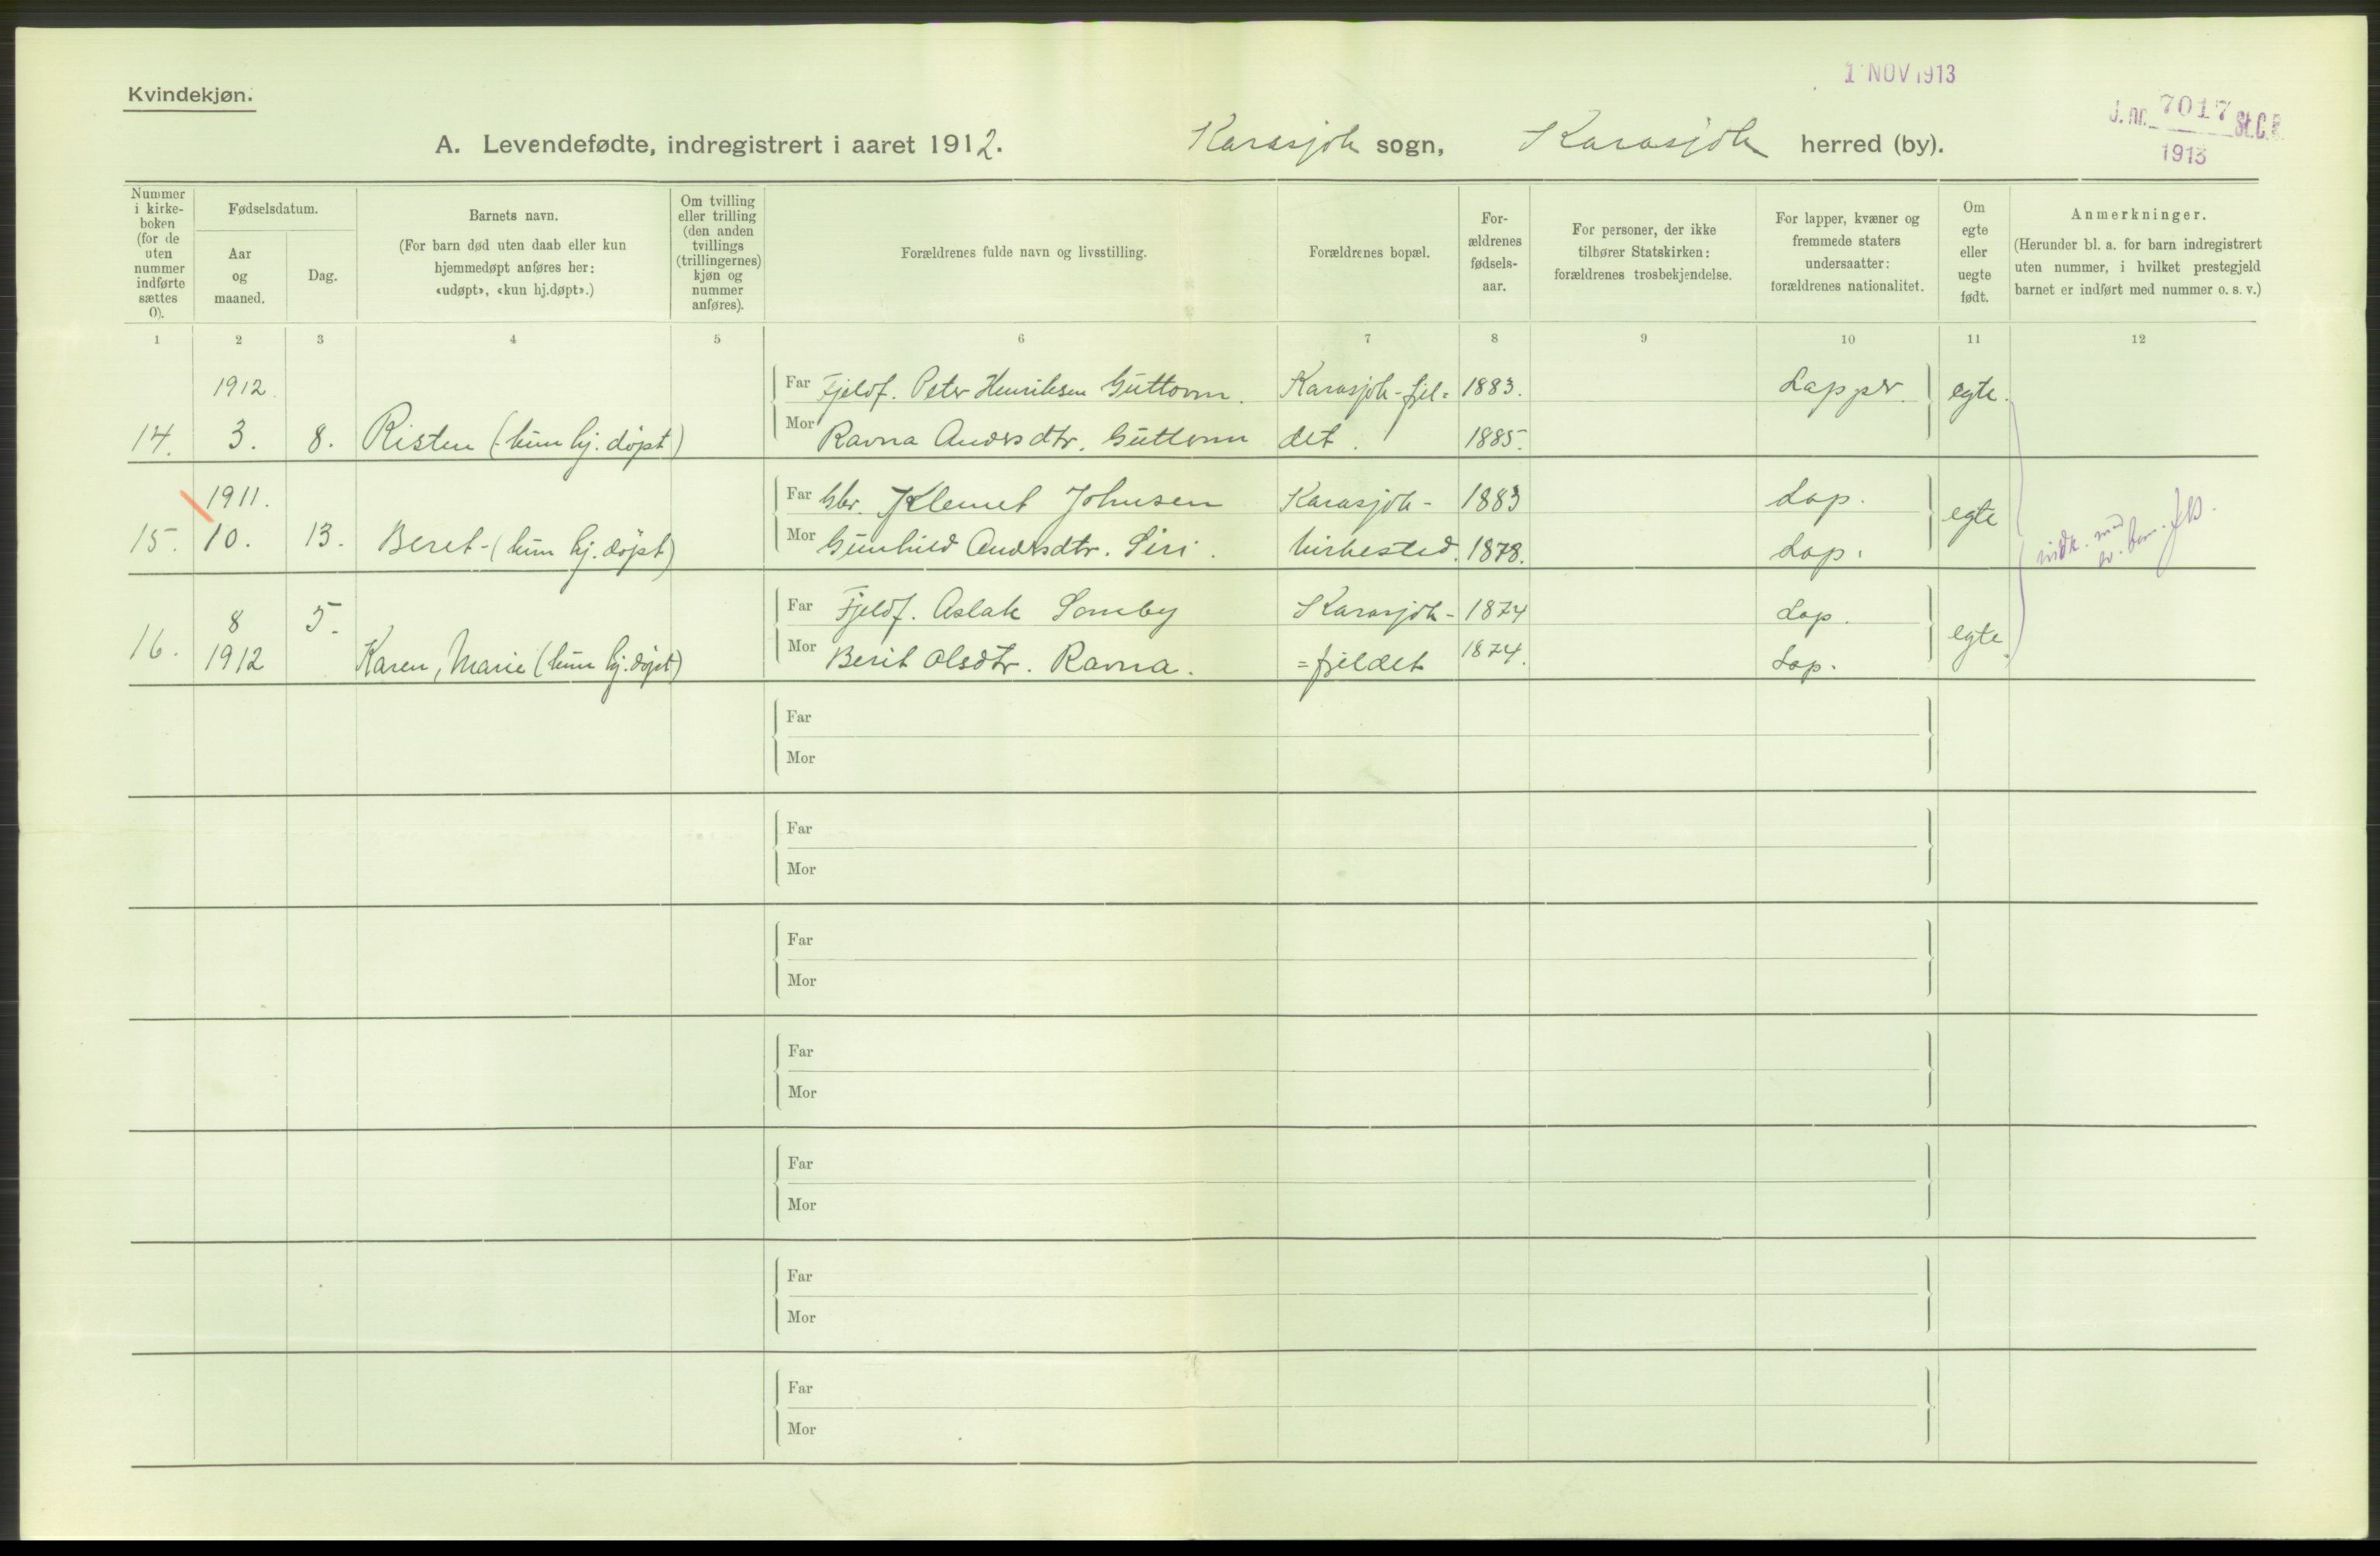 1 NOV 1913
Kvindekjøn.
J. nr. 7017 St.C.B.
1913
A. Levendefødte, indregistrert i aaret 1912. Karasjok sogn, Karasjok herred (by).
Nummer i kirkeboken (for de uten nummer indførte sættes 0).
Fødselsdatum.
Aar og maaned.
Dag.
Barnets navn.
(For barn død uten daab eller kun hjemmedøpt anføres her: «udøpt», «kun hj.døpt».)
Om tvilling eller trilling (den anden tvillings (trillingernes) kjøn og nummer anføres).
Forældrenes fulde navn og livsstilling.
Forældrenes bopæl.
For-ældrenes fødsels-aar.
For personer, der ikke tilhører Statskirken: forældrenes trosbekjendelse.
For lapper, kvæner og fremmede staters undersaatter: forældrenes nationalitet.
Om egte eller uegte født.
Anmerkninger.
(Herunder bl. a. for barn indregistrert uten nummer, i hvilket prestegjeld barnet er indført med nummer o. s. v.)
1 2 3 4 5 6 7 8 9 10 11 12
1912. Far Fjeldf. Peter Henriksen Guttorm. Karasjok-fjel= 1883. Lapper. egte.
14. 3. 8. Risten (kun hj. døpt) Mor Ravna Andersdtr. Guttorm det. 1885.
1911. Far Gbr. Klemet Johnsen Karasjok- 1883 Lap. egte
15. 10. 13. Beret - (kun hj. døpt) Mor Gunhild Andersdtr. Siri. kirkested. 1878. Lap.
8 5. Far Fjeldf. Aslak Somby Karasjok- 1874 Lap. egte.
16. 1912 Karen, Marie (kun hj. døpt) Mor Berit Olsdtr. Ravna. =fjeldet 1874. Lap.
Far
Mor
Far
Mor
Far
Mor
Far
Mor
Far
Mor
Far
Mor
Far
Mor